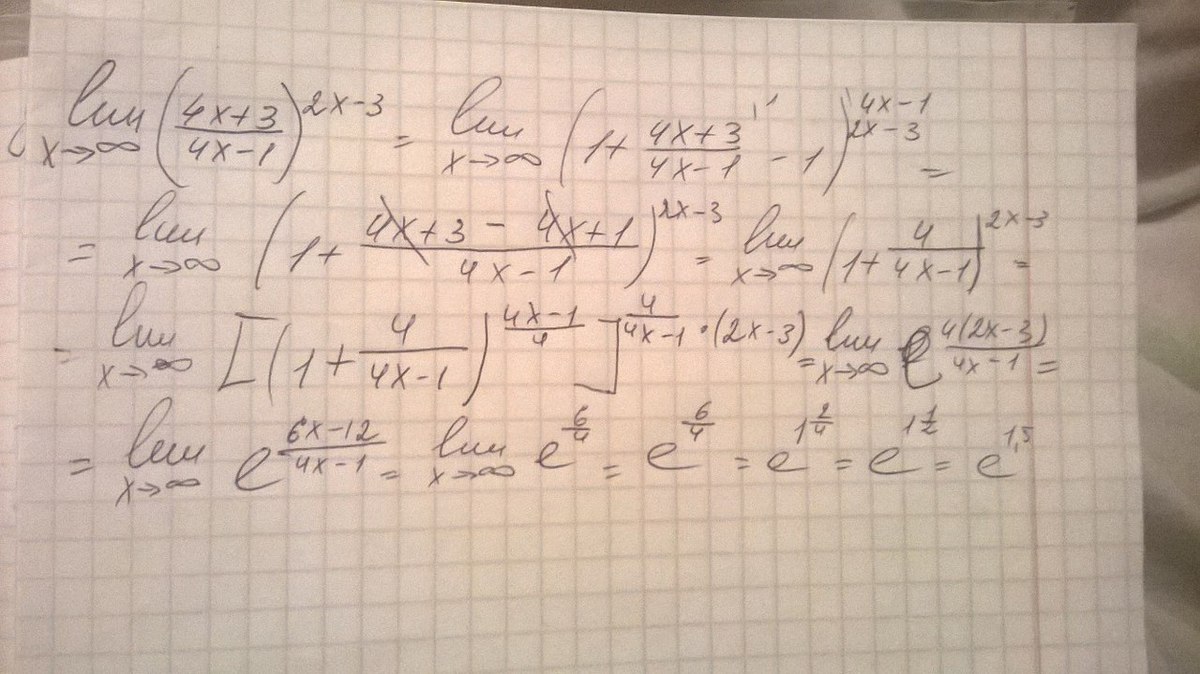 lim x→∞ ((4x+3)/(4x-1))^(2x-3) = lim x→∞ (1 + (4x+3)/(4x-1) - 1)^(2x-3) 4x-1 =
= lim x→∞ (1 + (4x+3-4x+1)/(4x-1))^(2x-3) = lim x→∞ (1 + 4/(4x-1))^(2x-3) =
= lim x→∞ [(1 + 4/(4x-1))^((4x-1)/4)]^(4/(4x-1) · (2x-3)) = lim x→∞ e^(4(2x-3)/(4x-1)) =
= lim x→∞ e^((6x-12)/(4x-1)) = lim x→∞ e^(6/4) = e^(6/4) = e^(1 2/4) = e^(1 1/2) = e^(1,5)